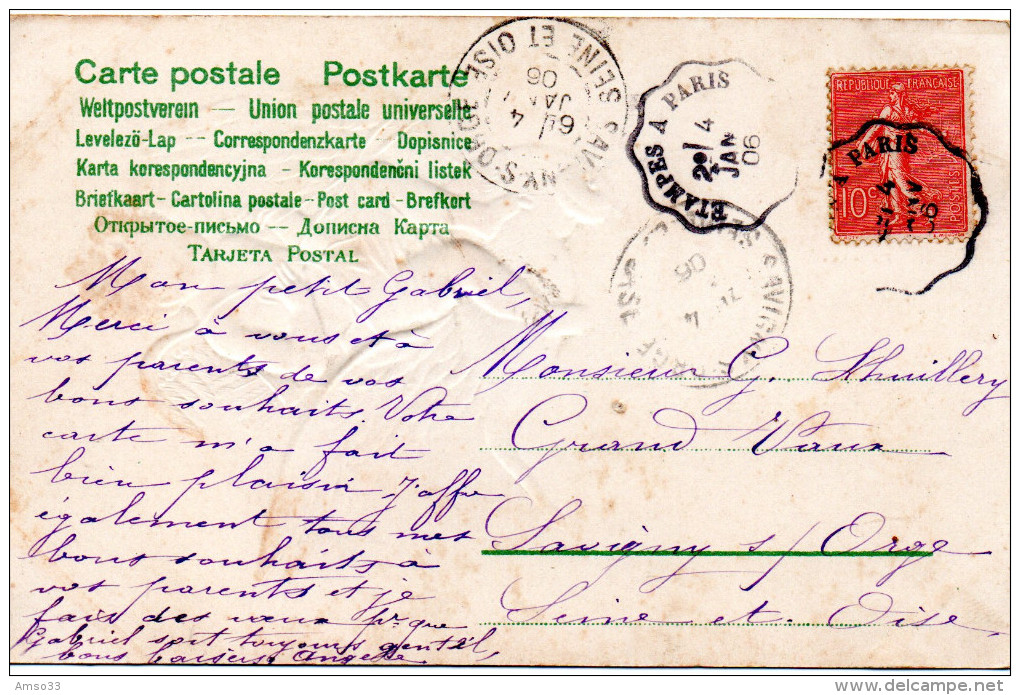 Carte postale Postkarte
Weltpostverein — Union postale universelle
Levelező-Lap -- Correspondenzkarte Dopisnice
Karta korespondencyjna - Korespondenční listek
Briefkaart - Cartolina postale - Post card - Brefkort
Открытое-письмо -- Дописна Карта
TARJETA POSTAL
SEINE ET OISE
4
JANV
06
ETAMPES A PARIS
4
JAN
06
REPUBLIQUE FRANÇAISE
10c
POSTES
A PARIS
4
06
Mon petit Gabriel,
Merci à vous et à
vos parents de vos
bons souhaits. Votre
carte m'a fait
bien plaisir. J'offre
également tous mes
bons souhaits à
vos parents et je
fais des vœux pr que
Gabriel soit toujours gentil,
bons baisers. Angèle
Monsieur G. Lhuillery
Grand Vaux
Savigny s/ Orge
Seine et Oise,
Amso33
www.delcampe.net